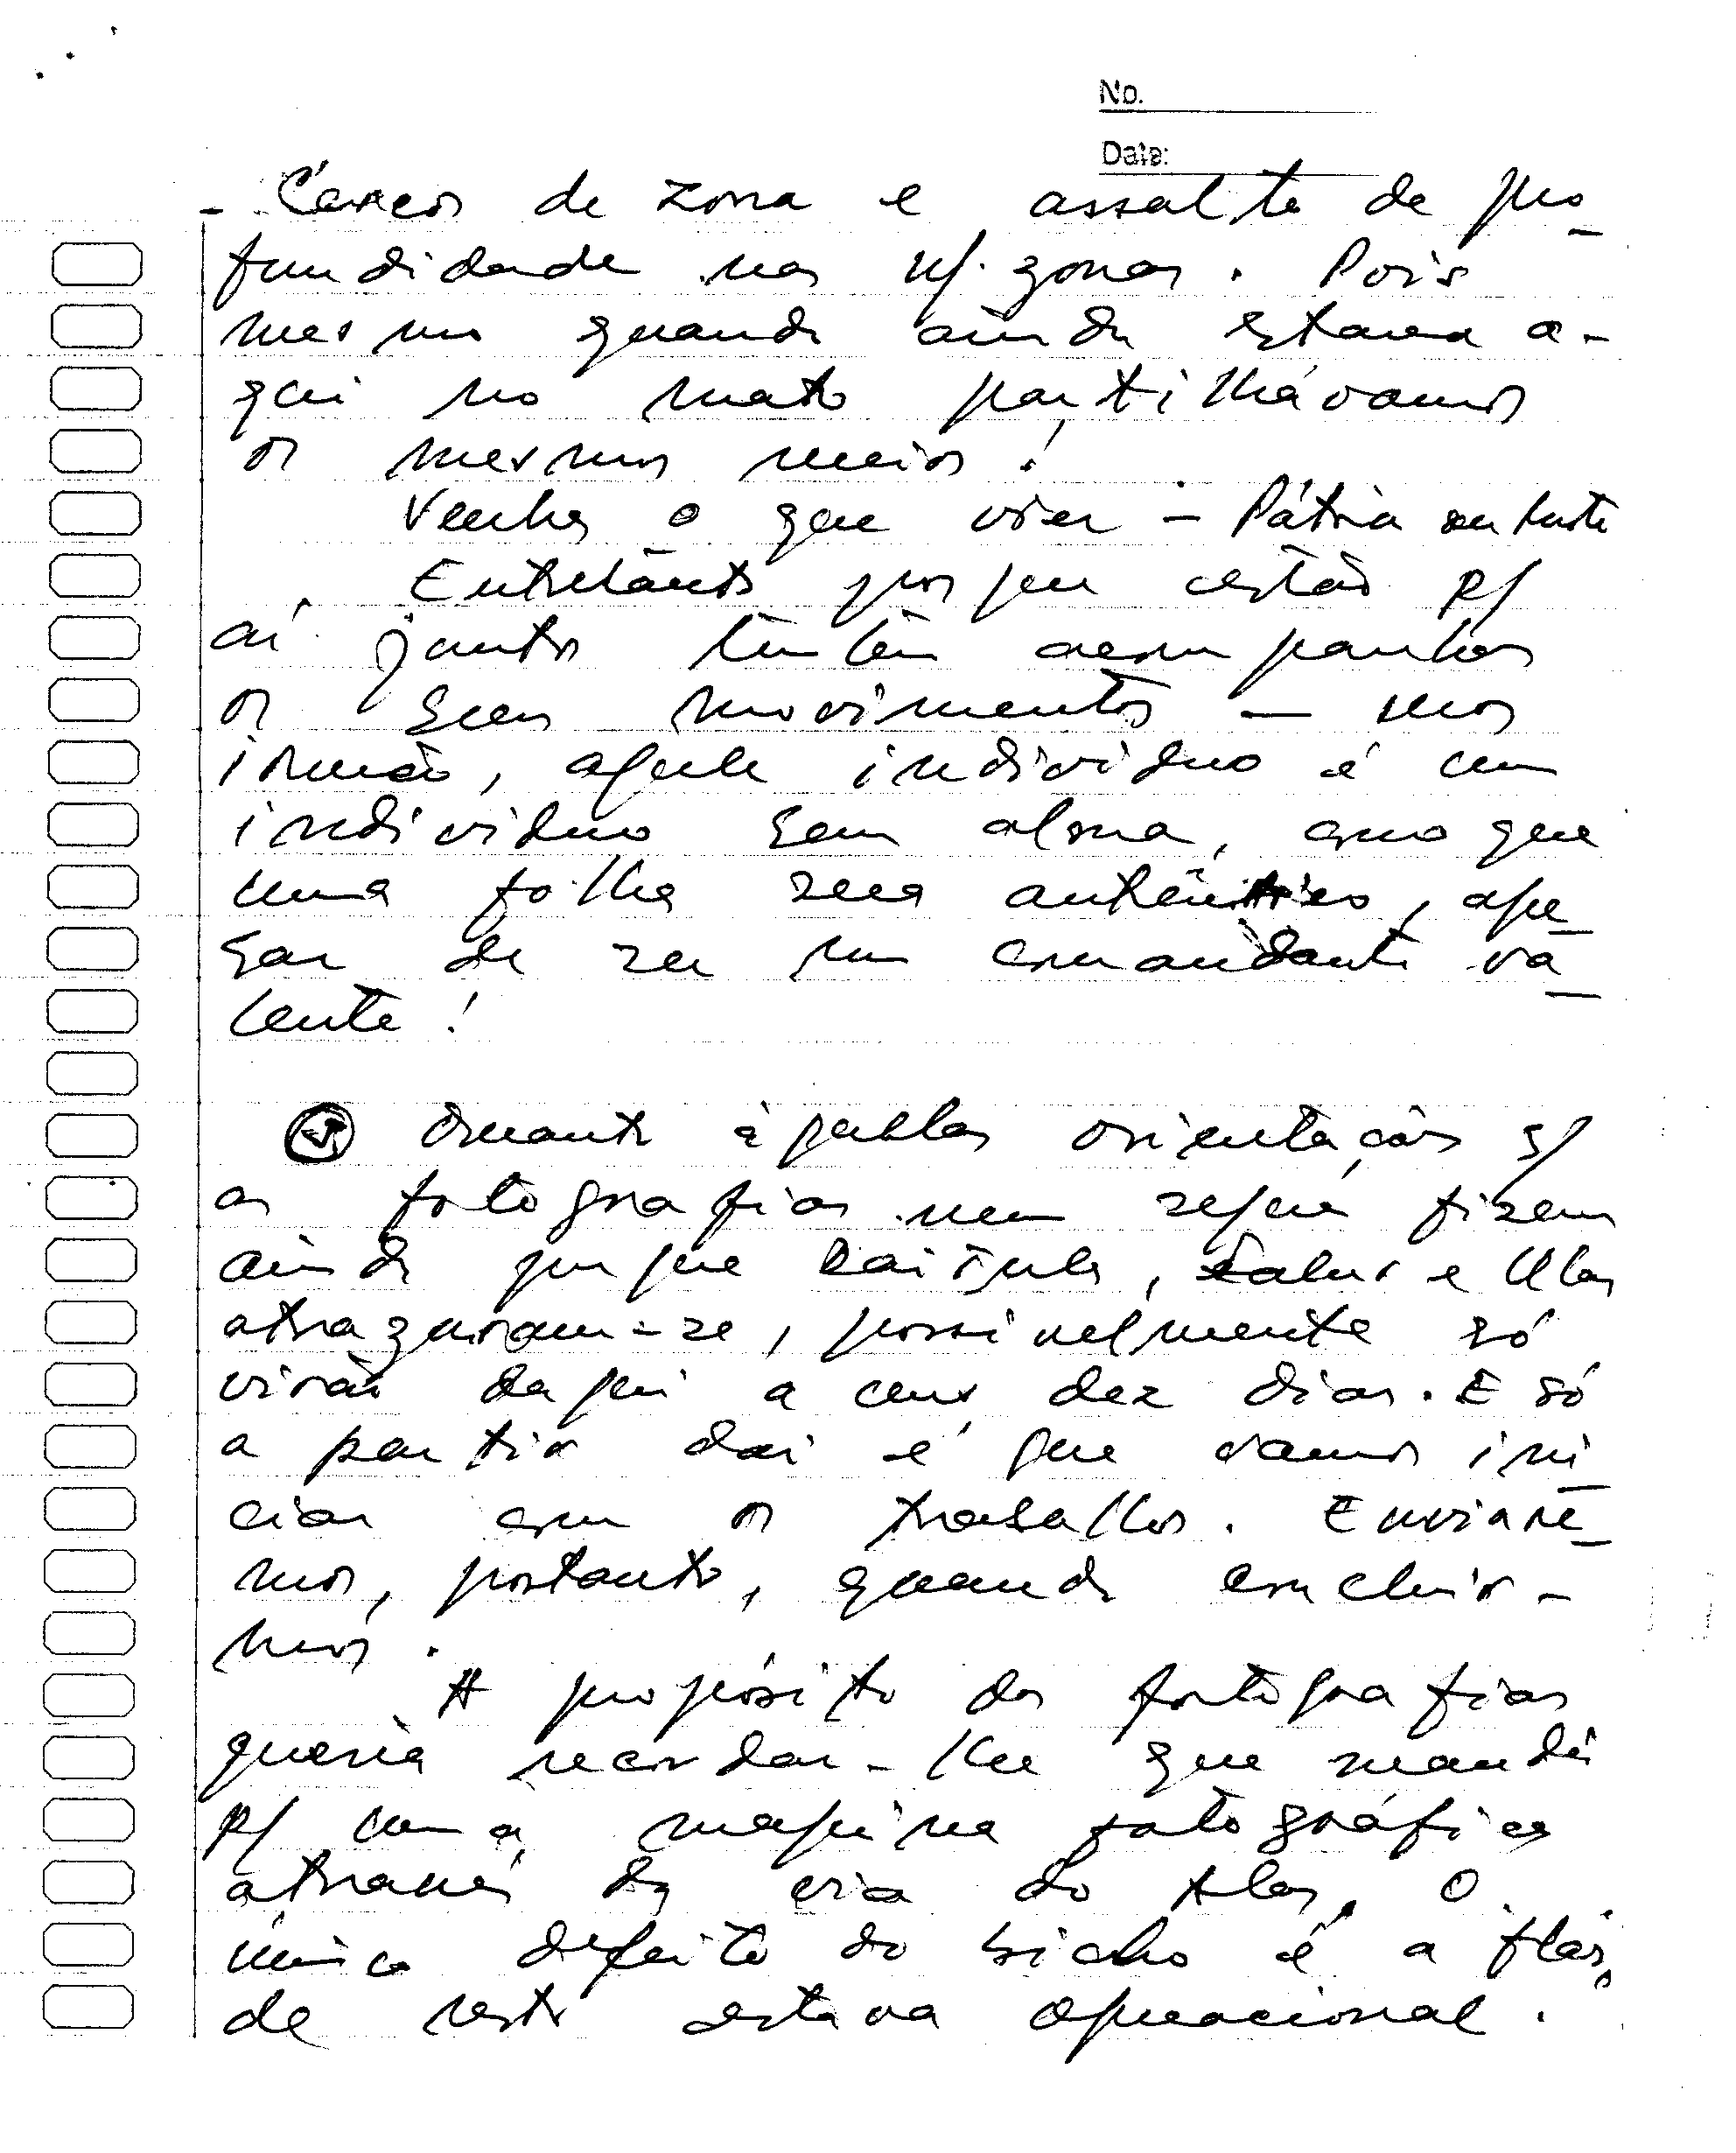 No.
Date:
- Cercos de zona e assalto de pro
fundidade nas n/. zonas. Pois
mesmo quando ainda estava a-
qui no mato partilhávamos
os mesmos meios!
Venha o que vier - Pátria ou Morte
Entretanto porque estão p/
aí juntos tentem acompanhar
os seus movimentos - meus
irmão, aquele individuo é um
individuo sem alma, como que
uma folha seca autêntico, ape
sar de ser um comandante va
lente!
Quanto àquelas orientações s/
as fotografias nem sequer fizeram
ainda porque e
atrazaram-se, possivelmente só
virão daqui a uns dez dias. E só
a partir dai é que vamos ini
ciar com os trabalhos. Enviare
mos, portanto, quando concluir-
mos.
A propósito das fotografias
queria recordar-lhe que mandei
p/ uma máquina fotográfica
através da via do Alas. O
único defeito do bicho é a flas,
de resto estava operacional.